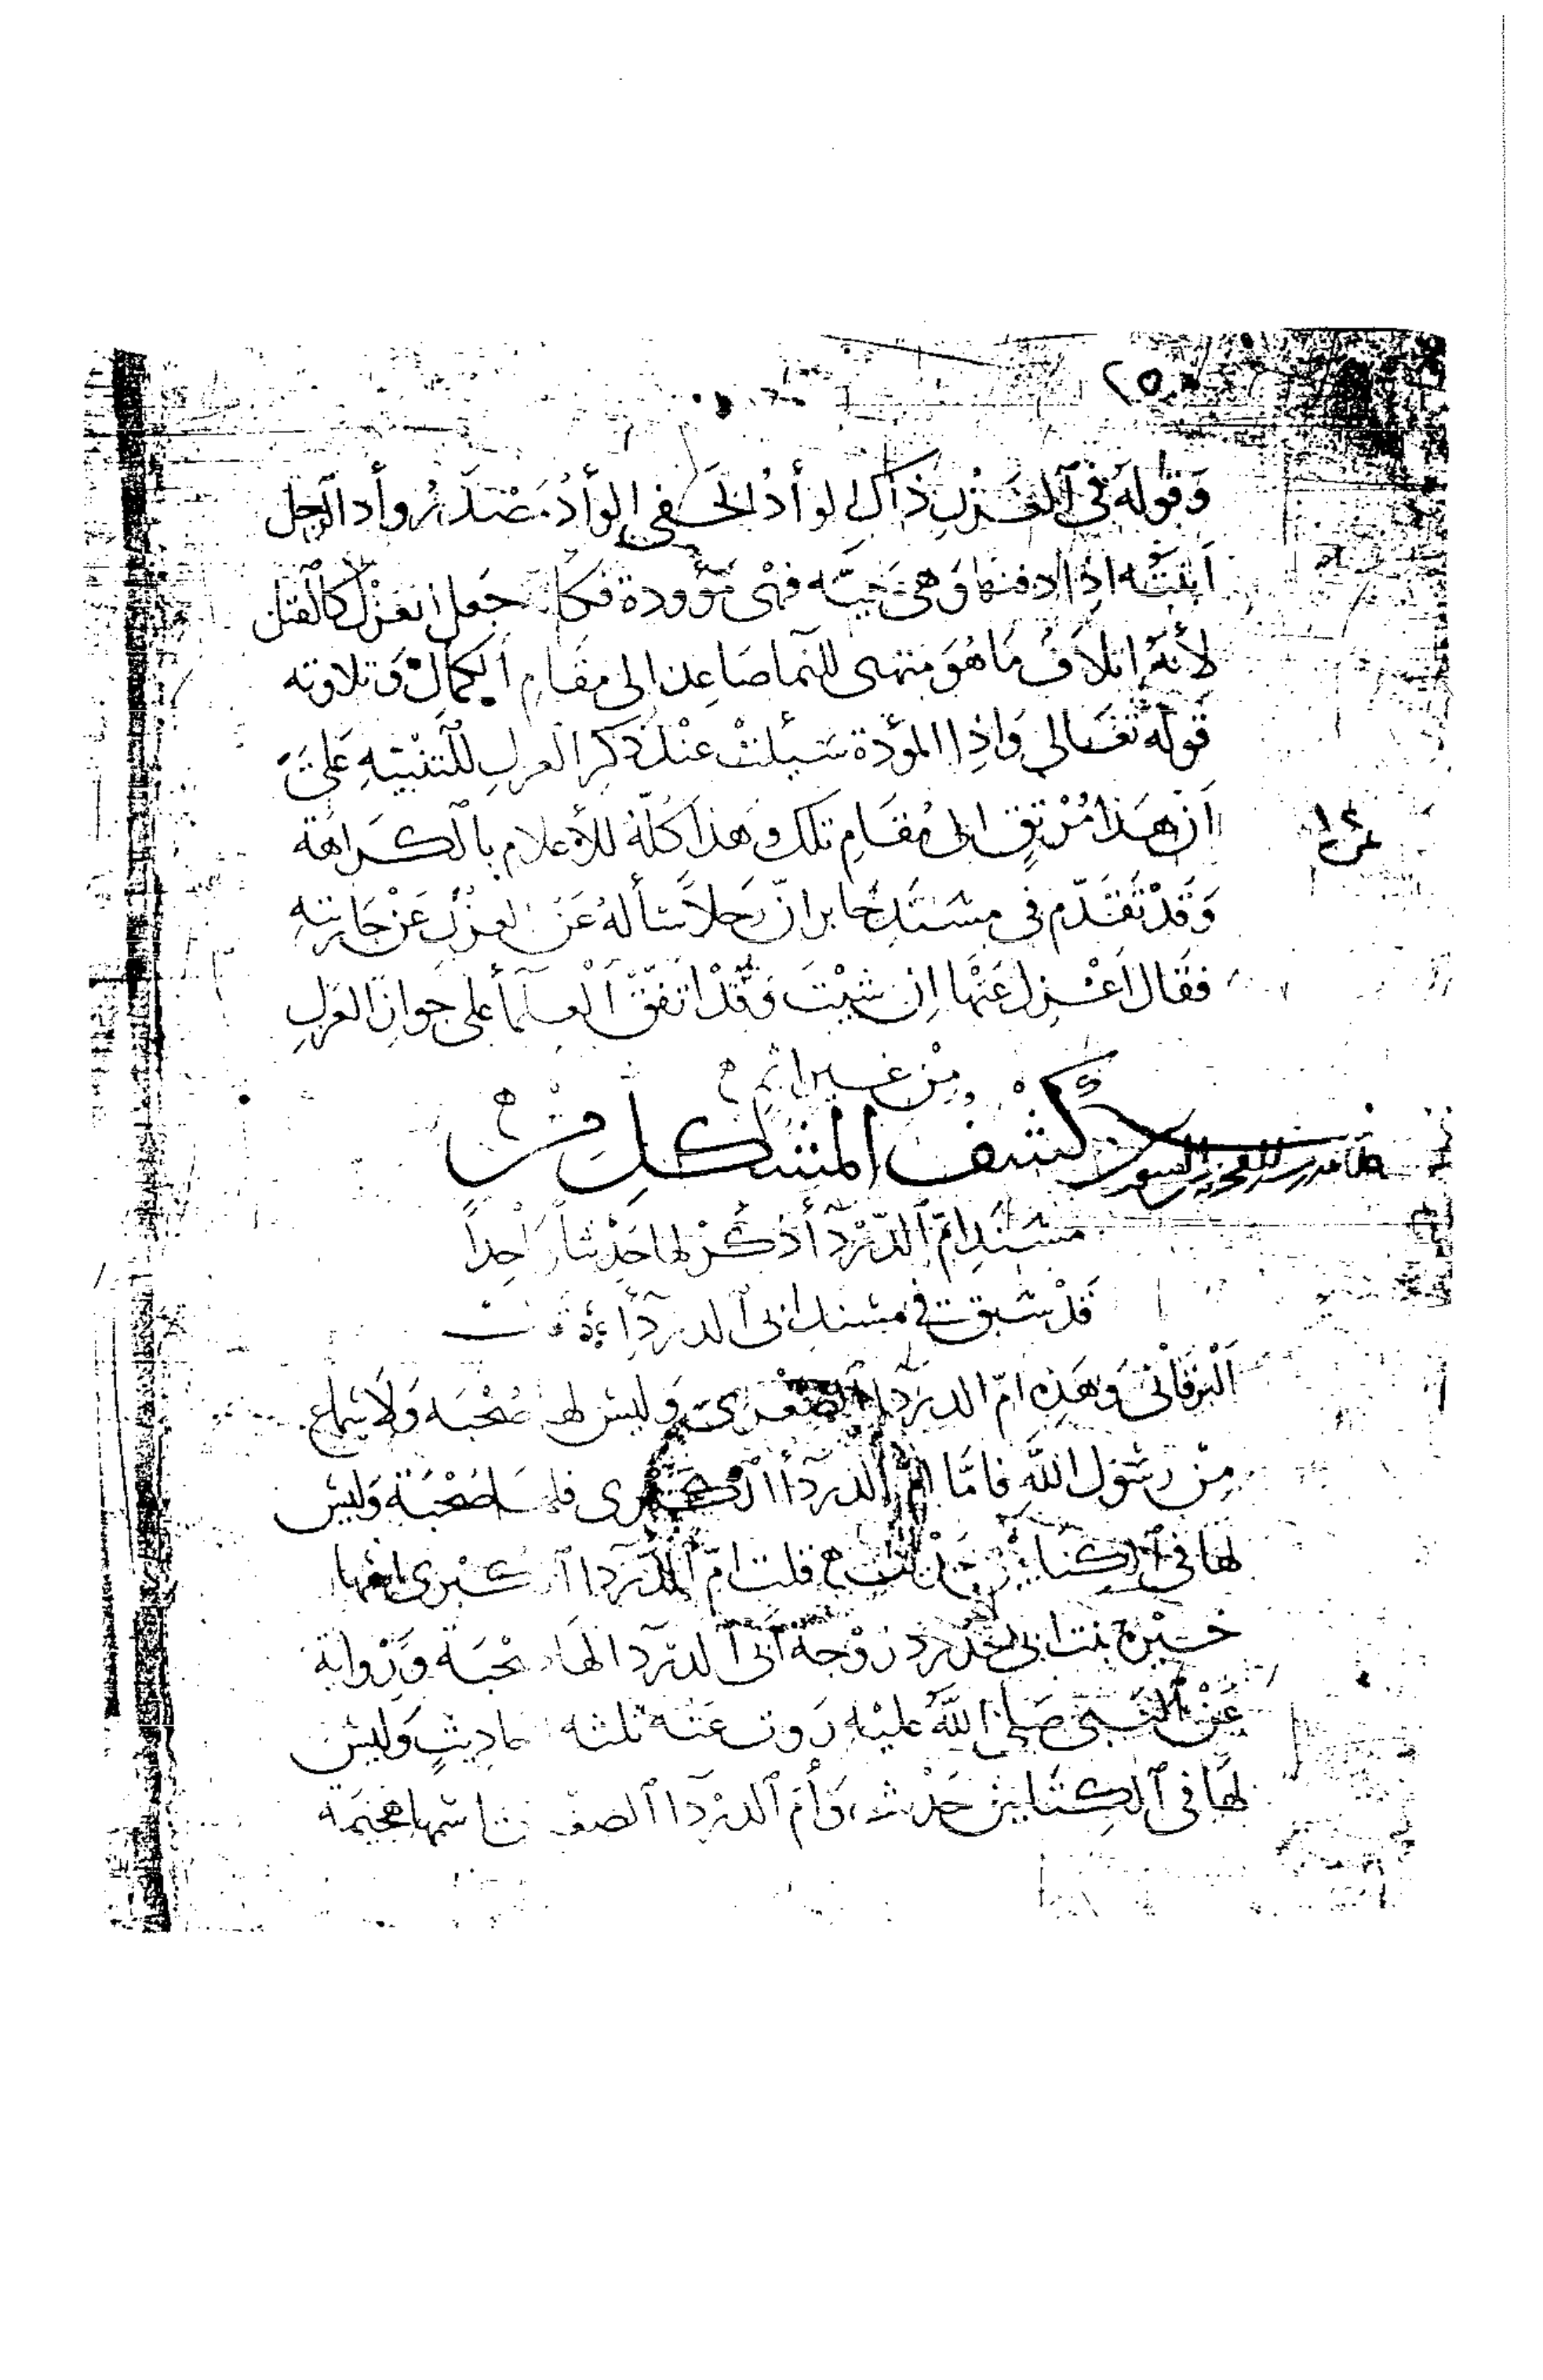 ٢٥٠
وَقوله في العَزْل ذاك الوأدُ الخَفي الوأدُ مَصْدَرُ وأد الرجل
ابنته اذا دفنها وَهى حَيّه فهْى مَوْؤودة فكانه جَعل العَزْل كالقتل
لأنهُ اتلافُ مَا هُوَ منتهى للنما صَاعِدا الى مقَامِ الكمال وَتلاوته
قولهُ تعَالى وَاذا المؤدة سَئِلتْ عنْد ذكر العزل للتنْبيهِ عَلى
اَنّ هَذا مُرْتقٍ الى مُقَامِ تلك وهَذا كلّهُ للأعلام بالكَراهَة
وَقدْ تقَدّم في مسْنَد جَابر انّ رَجلاً سَأله عَن العزْل عَنْ جَاريتهِ
فقَال اَعْزل عَنْها اِن شئِتَ وَقدْ اتفقَ العلمَا على جَوازِ العَزلِ
مِنْ غير اثم ه
كشف المشكل من
مسْنَد امّ الدّرْدَآ أذكُرْ لها حَدْيثاً وَاحِداً
قَدْ سَبق في مسْند ابى الدردآ
اَلْبَرقانْى وَهَذِه امّ الدرْدَآ الصغْرى وَليسْ لها صُحْبَه وَلا سَماع
مِنْ رسُول الله فامَّا امّ الدردآ الكبْرى فلهَا صُحْبَة وَليسْ
لهَا في الكتابيْن حَدْيث ه قلت امّ الدّردآ الكبْرى اسْمها
خَيْره بنت ابى حَدْرد زوْجَة أبى الدردآ لهَا صحْبَة وَرْوايَة
عَنْ النبى صَلى اللهُ عليْه رَوت عَنْه ثلثه احاديثٍ وَليسْ
لهَا في الكِتَابيْن حَدْيث، وَأمّ الدرْدَآ الصغرى اسْمها هجَيمَة